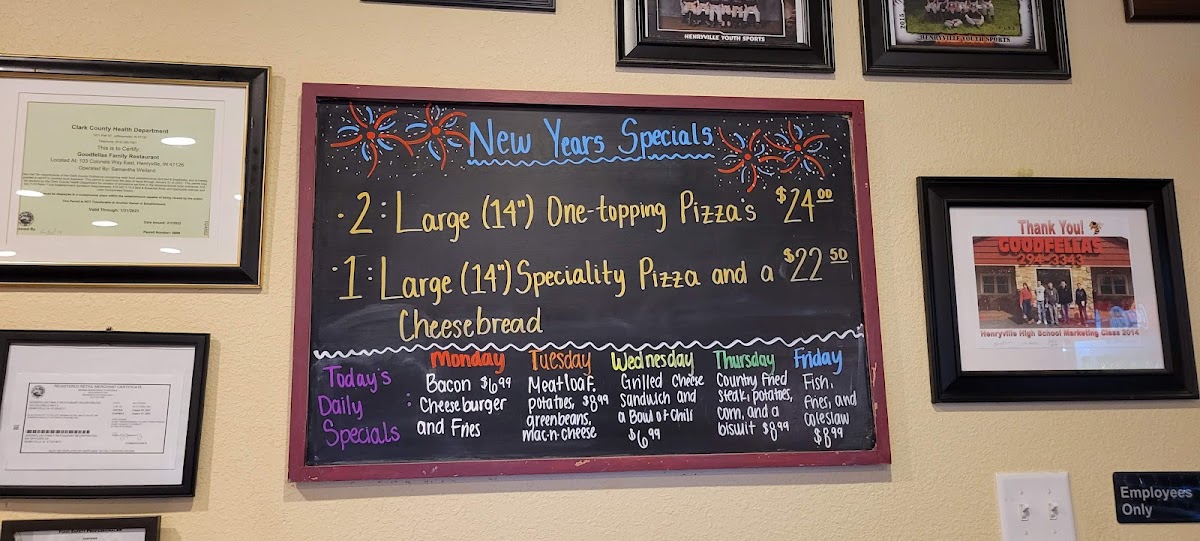 HENRYVILLE YOUTH SPORTS
2015
HENRYVILLE YOUTH SPORTS
Clark County Health Department
This is to Certify
Goodfellas Family Restaurant
Located At: 103 Coopers Way East, Henryville, IN 47126
Operated By: Samantha Weiland
REGISTERED RETAIL MERCHANT CERTIFICATE
New Years Specials
• 2: Large (14") One-topping Pizza's $24.00
• 1: Large (14") Speciality Pizza and a $22.50
Cheesebread
Today's
Daily :
Specials
Monday
Bacon $6.99
Cheeseburger
and Fries
Tuesday
Meatloaf,
potatoes, $8.99
greenbeans,
mac-n-cheese
Wednesday
Grilled Cheese
Sandwich and
a Bowl of Chili
$6.99
Thursday
Country fried
steak, potatoes,
corn, and a
biscuit $8.99
Friday
Fish,
fries, and
coleslaw
$8.99
Thank You!
GOODFELLAS
294-3343
Henryville High School Marketing Class 2014
Employees
Only